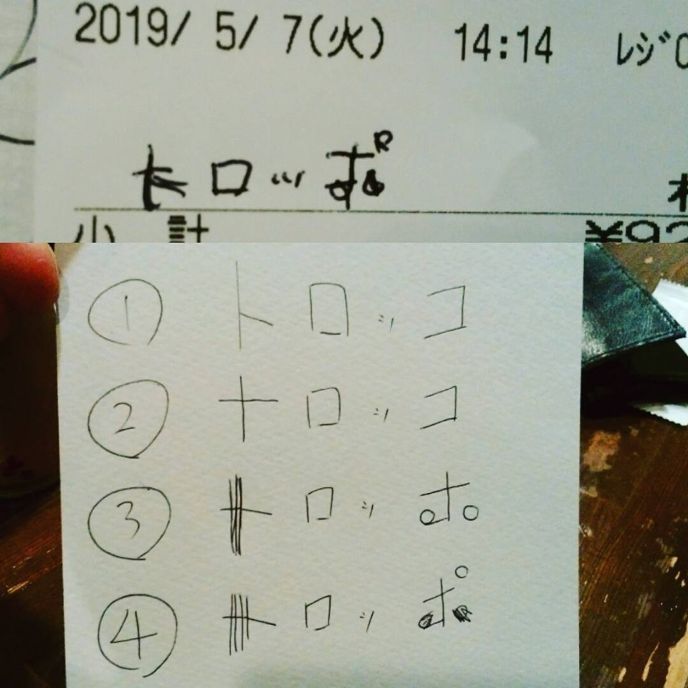 2019/ 5/ 7(火) 14:14 ﾚｼﾞ
トロッポ
小 計 ¥92
① トロッコ
② 十ロッコ
③ トロッホ
④ トロッポ